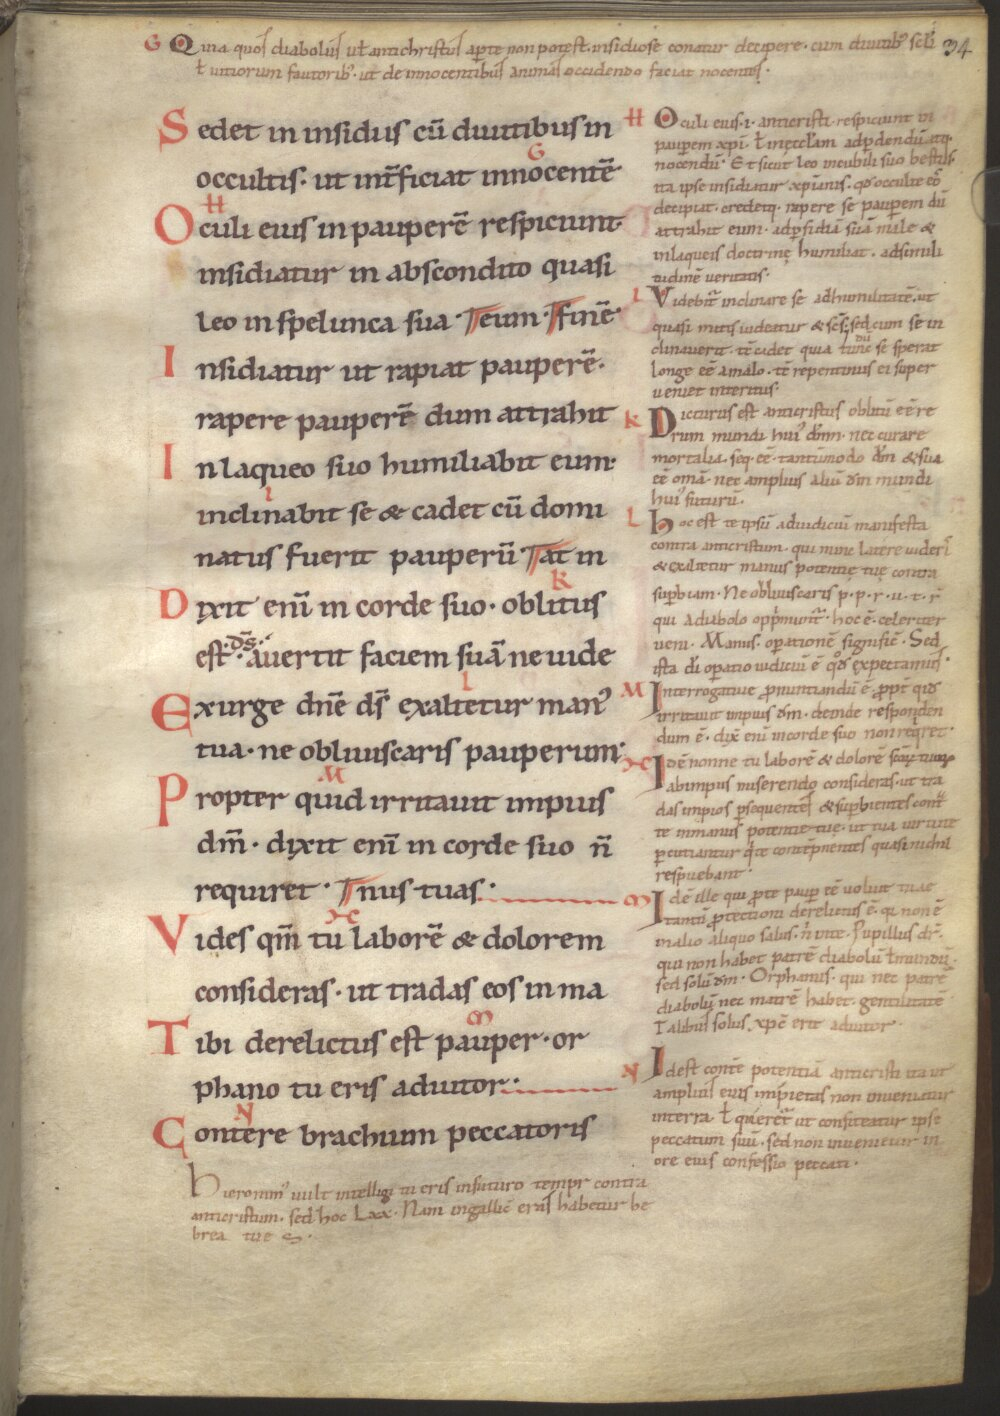 G Quia quos diabolus ut̄ antichristus aperte non potest. insidiose conatur decipere. cum diuitibꝰ scł̄i 34
ł uitiorum fautoribꝰ. ut de innocentibus animas occidendo faciat nocentes.
Sedet in insidiis cū diuitibus in
G
occultis. ut int̄ficiat innocentē
H
Oculi eius in pauperē respiciunt
insidiatur in abscondito quasi
leo in spelunca sua. eum. finē
Insidiatur ut rapiat pauperē.
rapere pauperē dum attrahit
In laqueo suo humiliabit eum.
I
inclinabit se & cadet cū domi
natus fuerit pauperū at in
K
Dixit enī in corde suo. oblitus
est. ds̄. auertit faciem suā ne uide
L
Exurge dn̄e ds̄ exaltetur manꝰ
tua. ne obliuiscaris pauperum.
M
Propter quid irritauit impius
dm̄. dixit enī in corde suo n̄
requiret. nus tuas.
Vides qm̄ tu laborē & dolorem
consideras. ut tradas eos in ma
Tibi derelictus est pauper. or
phano tu eris adiutor.
N
Contere brachium peccatoris
Hieronimꝰ uult intelligi tu eris in futuro tempr contra
anticristum. sed hoc Lxx. Nam in gallic̄ eris habetur he
brea tue
H Oculi eius .i. anticristi respiciunt in
pauperem xpī. ł in ęccłam ad pdendū atq.
nocendū. Et sicut leo in cubili suo bestiis.
ita ipse insidiatur xpianis. qd̄ occulte eos
decipiat. credetq. rapere se pauperem dū
attrahit eum. ad pfidiā suā mile &
in laqueis doctrinę humiliat. ad simili
tudinē ueritatis.
I Videbit̄ inclinare se ad humilitatē. ut
quasi mitis uideatur & scs̄. sed cum se in
clinauerit. tc̄ cadet quia tunc dū se sperat
longe eē a malo. tc̄ repentinus ei super
ueniet interitus.
K Dicturus est anticristus oblitū eē re
rum mundi huiꝰ dm̄. nec curare
mortalia. seq. eē tantūmodo dm̄ & sua
eē om̄a. nec amplius aliū dm̄ mundi
huiꝰ futurū.
L Hoc est te ipsū ad iudiciū manifesta
contra anticristum. qui nunc latere uideris
& exaltetur manus potentię tuę contra
supbiam. Ne obliuiscaris p. p. r. u. t. r̄
qui a diabolo opprimunt̄. hoc ē. celeriter
ueni. Manus. opationē signific̄. Sed
ista di operatio iudiciū ē qd̄ expectamus.
M Interrogatiue pnuntiandū ē. ppt̄ quid
irritauit impius dm̄. deinde responden
dum ē. dix̄ enī in corde suo non reqret.
Idē nonne tu laborē & dolorē scōꝝ tuoꝝ
ab impiis miserendo consideras. ut tra
das impios psequentes & supbientes cont̄
te in manus potentię tuę. ut tua uirtute
pcutiantur qi te contēpnentes quasi nichil
respuebant.
Idē ille qui p te paup eē uoluit tuae
tantū ptectioni derelictus ē. qi non ē
in alio aliquo salus. n̄ in te. Pupillus dr̄.
qui non habet patrē diabolū ł mundū.
sed solū dm̄. Orphanus. qui nec patrē
diabolū nec matrē habet gentilitatē
Talibus solus xpc̄ erit adiutor.
N Idest conte potentiā anticristi ita ut
amplius eius impietas non inueniatur
in terra. ł quęret̄ ut confiteatur ipse
peccatum suū. sed non inuenietur in
ore eius confessio peccati.